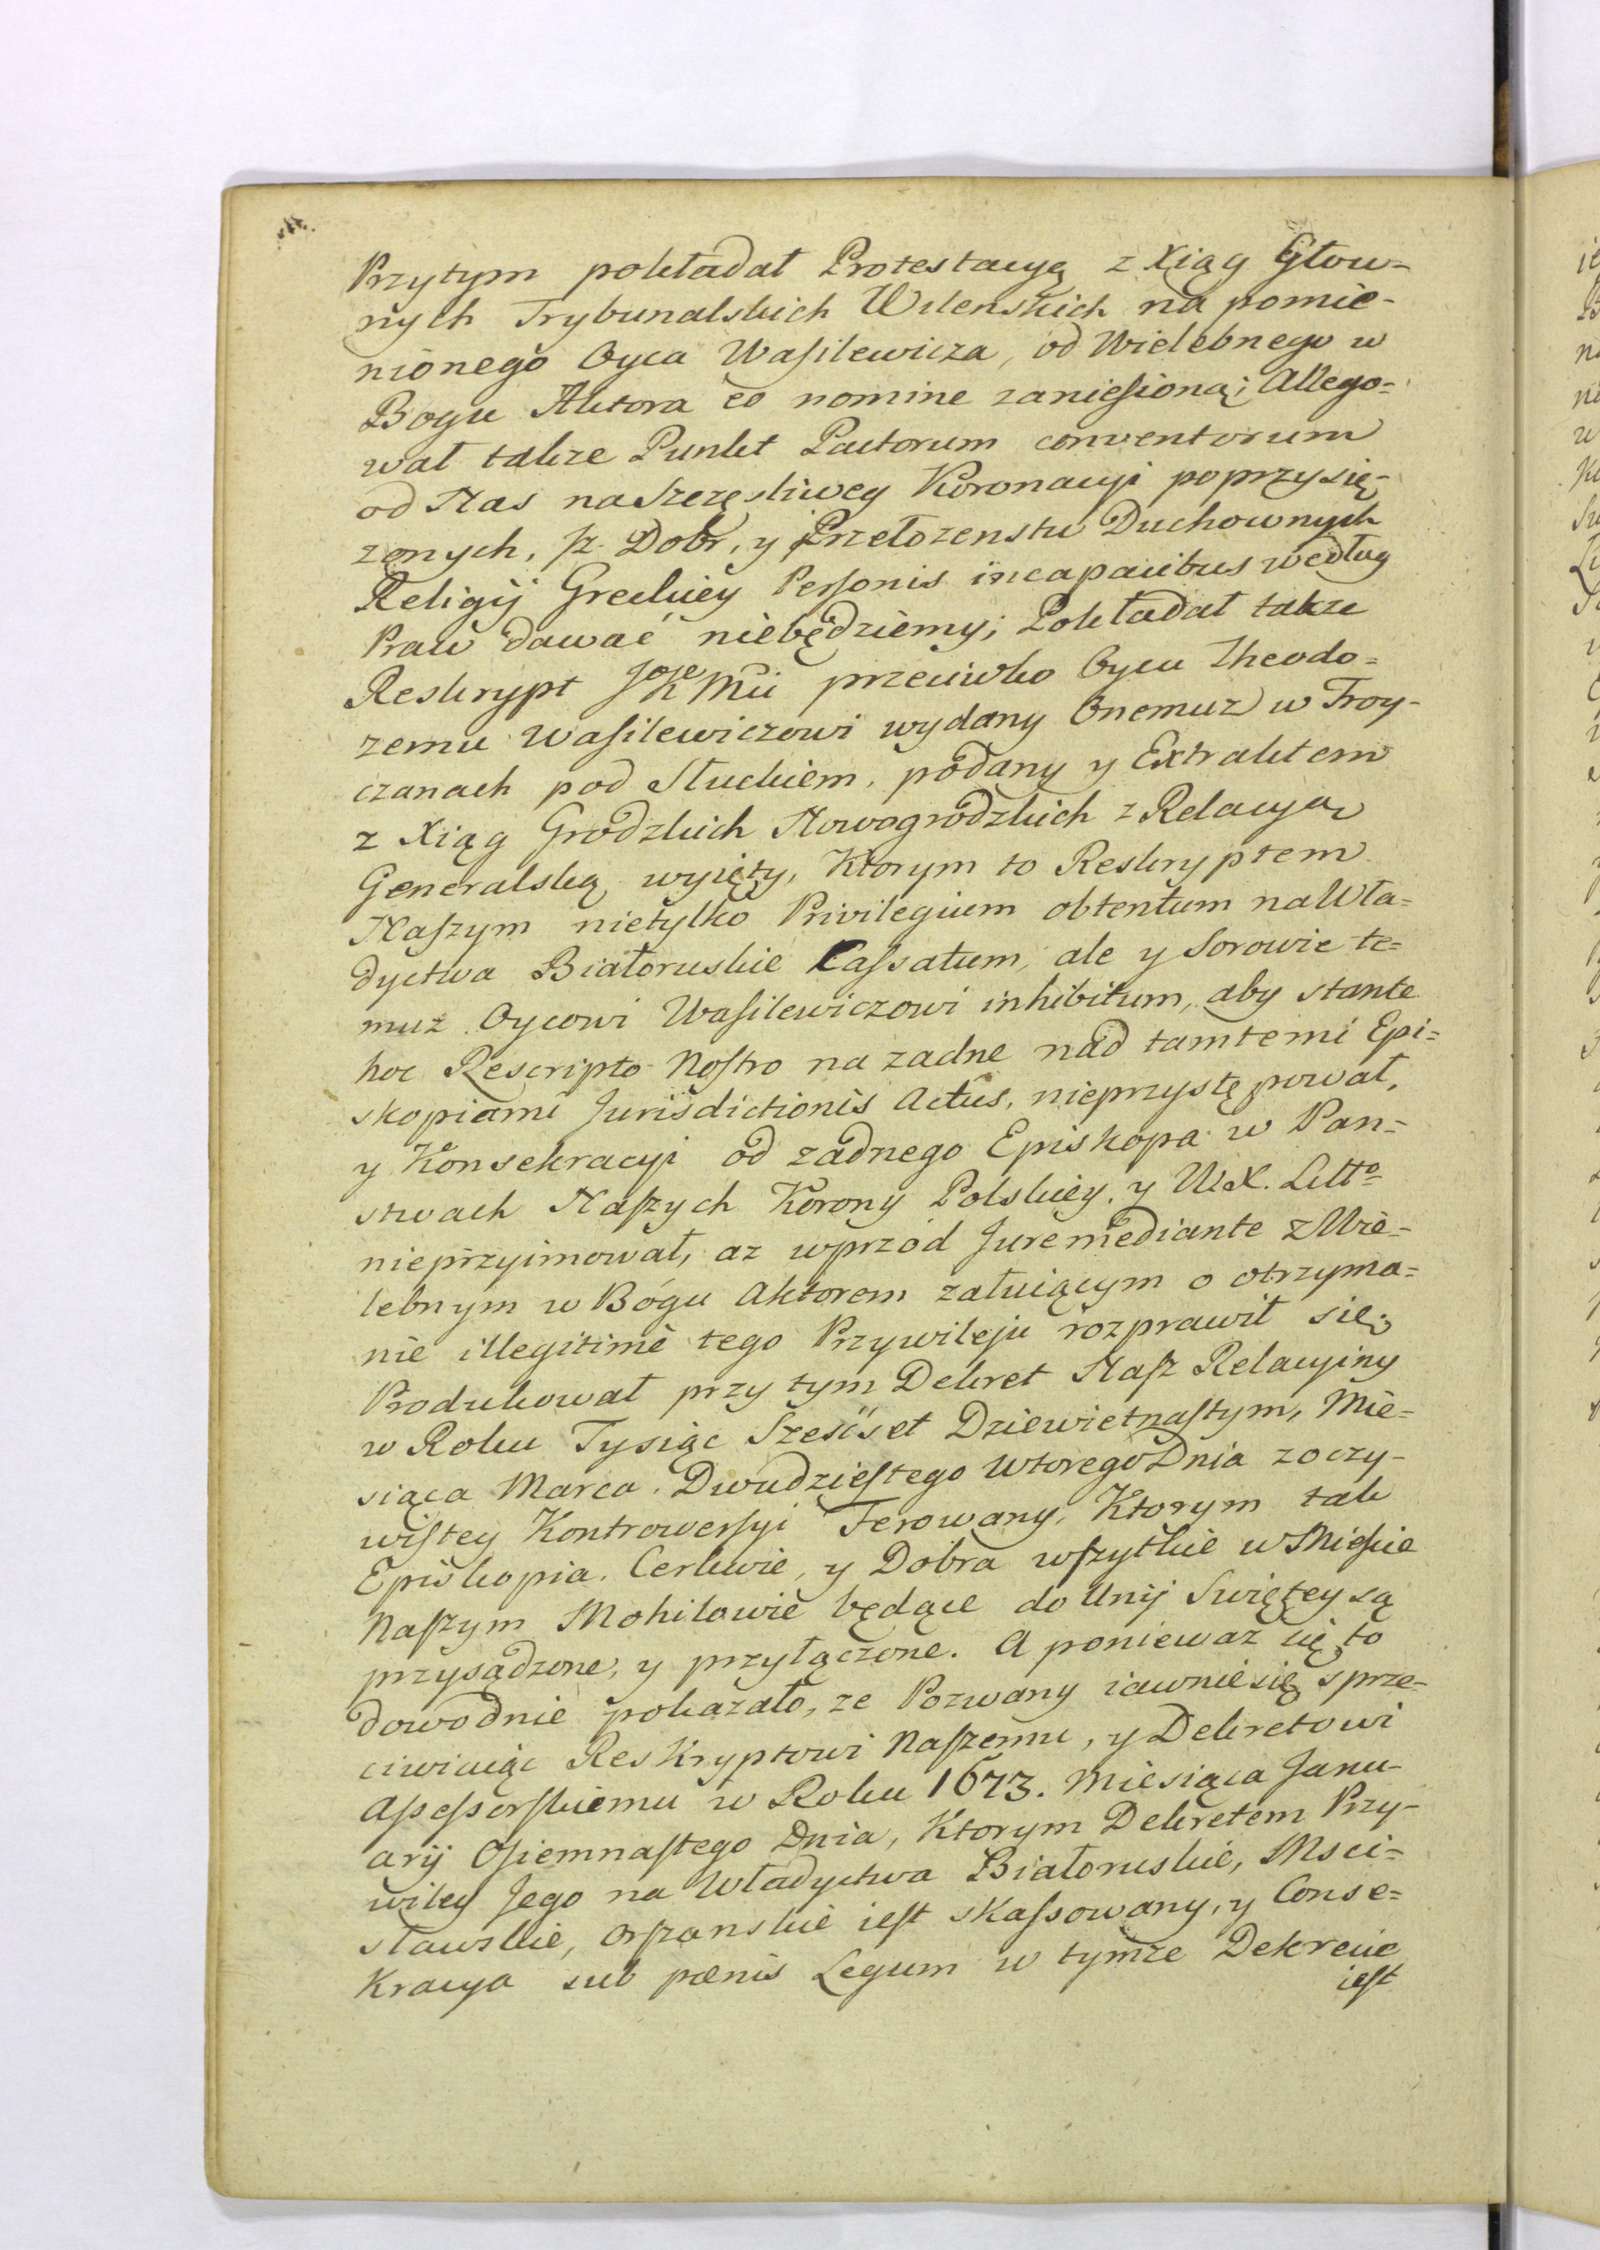 Przytym pokładał Protestacyą z Xiąg Głow-
nych Trybunalskich Wilenskich na pomie-
nionego Oyca Wasilewicza, od Wielebnego w
Bogu Aktora eo nomine zaniesioną; Allego-
wał takze Punkt Pactorum conventorum
od Nas na Szczęsliwey Koronacyi poprzysię-
zonych, sz. Dobr, y Przełozenstw Duchownych
Religij Greckiey Personis incapacibus według
Praw dawać niebędziemy; Pokładał takze
Reskrypt JoKeMci przeciwko Oycu Theodo=
zemu Wasilewiczowi wydany Onemuz w Troy-
czanach pod Słuckiem, podany y Extraktem
z Xiąg Grodzkich Nowogrodzkich z Relacyą
Generalską wyięty, Ktorym to Reskryptem
Naszym nietylko Privilegium obtentum na Wła=
dyctwa Białoruskie Cassatum, ale y Sorowie te=
muz Oycowi Wasilewiczowi inhibitum, aby stante
hoc Rescripto Nostro na zadne nad tamtemi Epi=
skopiami Jurisdictionis Actus, nieprzystępował,
y Konsekracyi od zadnego Episkopa w Pan=
stwach Naszych Korony Polskiey, y W.X. Litto
nieprzyimował, az wprzód Jure mediante z Wie-
lebnym w Bógu Aktorem załuiącym o otrzyma=
nie illegitime tego Przywileju rozprawił sie;
Produkował przy tym Dekret Nasz Relacyiny
w Roku Tysiąc Szescset Dziewietnastym, Mie=
siąca Marca Dwudziestego Wtorego Dnia z oczy-
wistey Kontrowersyi Ferowany, Ktorym tak
Episkopia, Cerkwie, y Dobra wszytkie w Miescie
Naszym Mohilowie będące do Unij Swiętey są
przysądzone, y przyłączone. A poniewaz się to
dowodnie pokazało, ze Pozwany iawnie się sprze-
ciwiaiąc Reskryptowi Naszemu, y Dekretowi
Assessorskiemu w Roku 1673. Miesiąca Janu-
arij Osiemnastego Dnia, Ktorym Dekretem Przy-
wiley Jego na Władyctwa Białoruskie, Msci=
sławskie, Orszanskie iest skassowany, y Conse=
Kracya sub pœnis Legum w tymze Dekrecie
iest